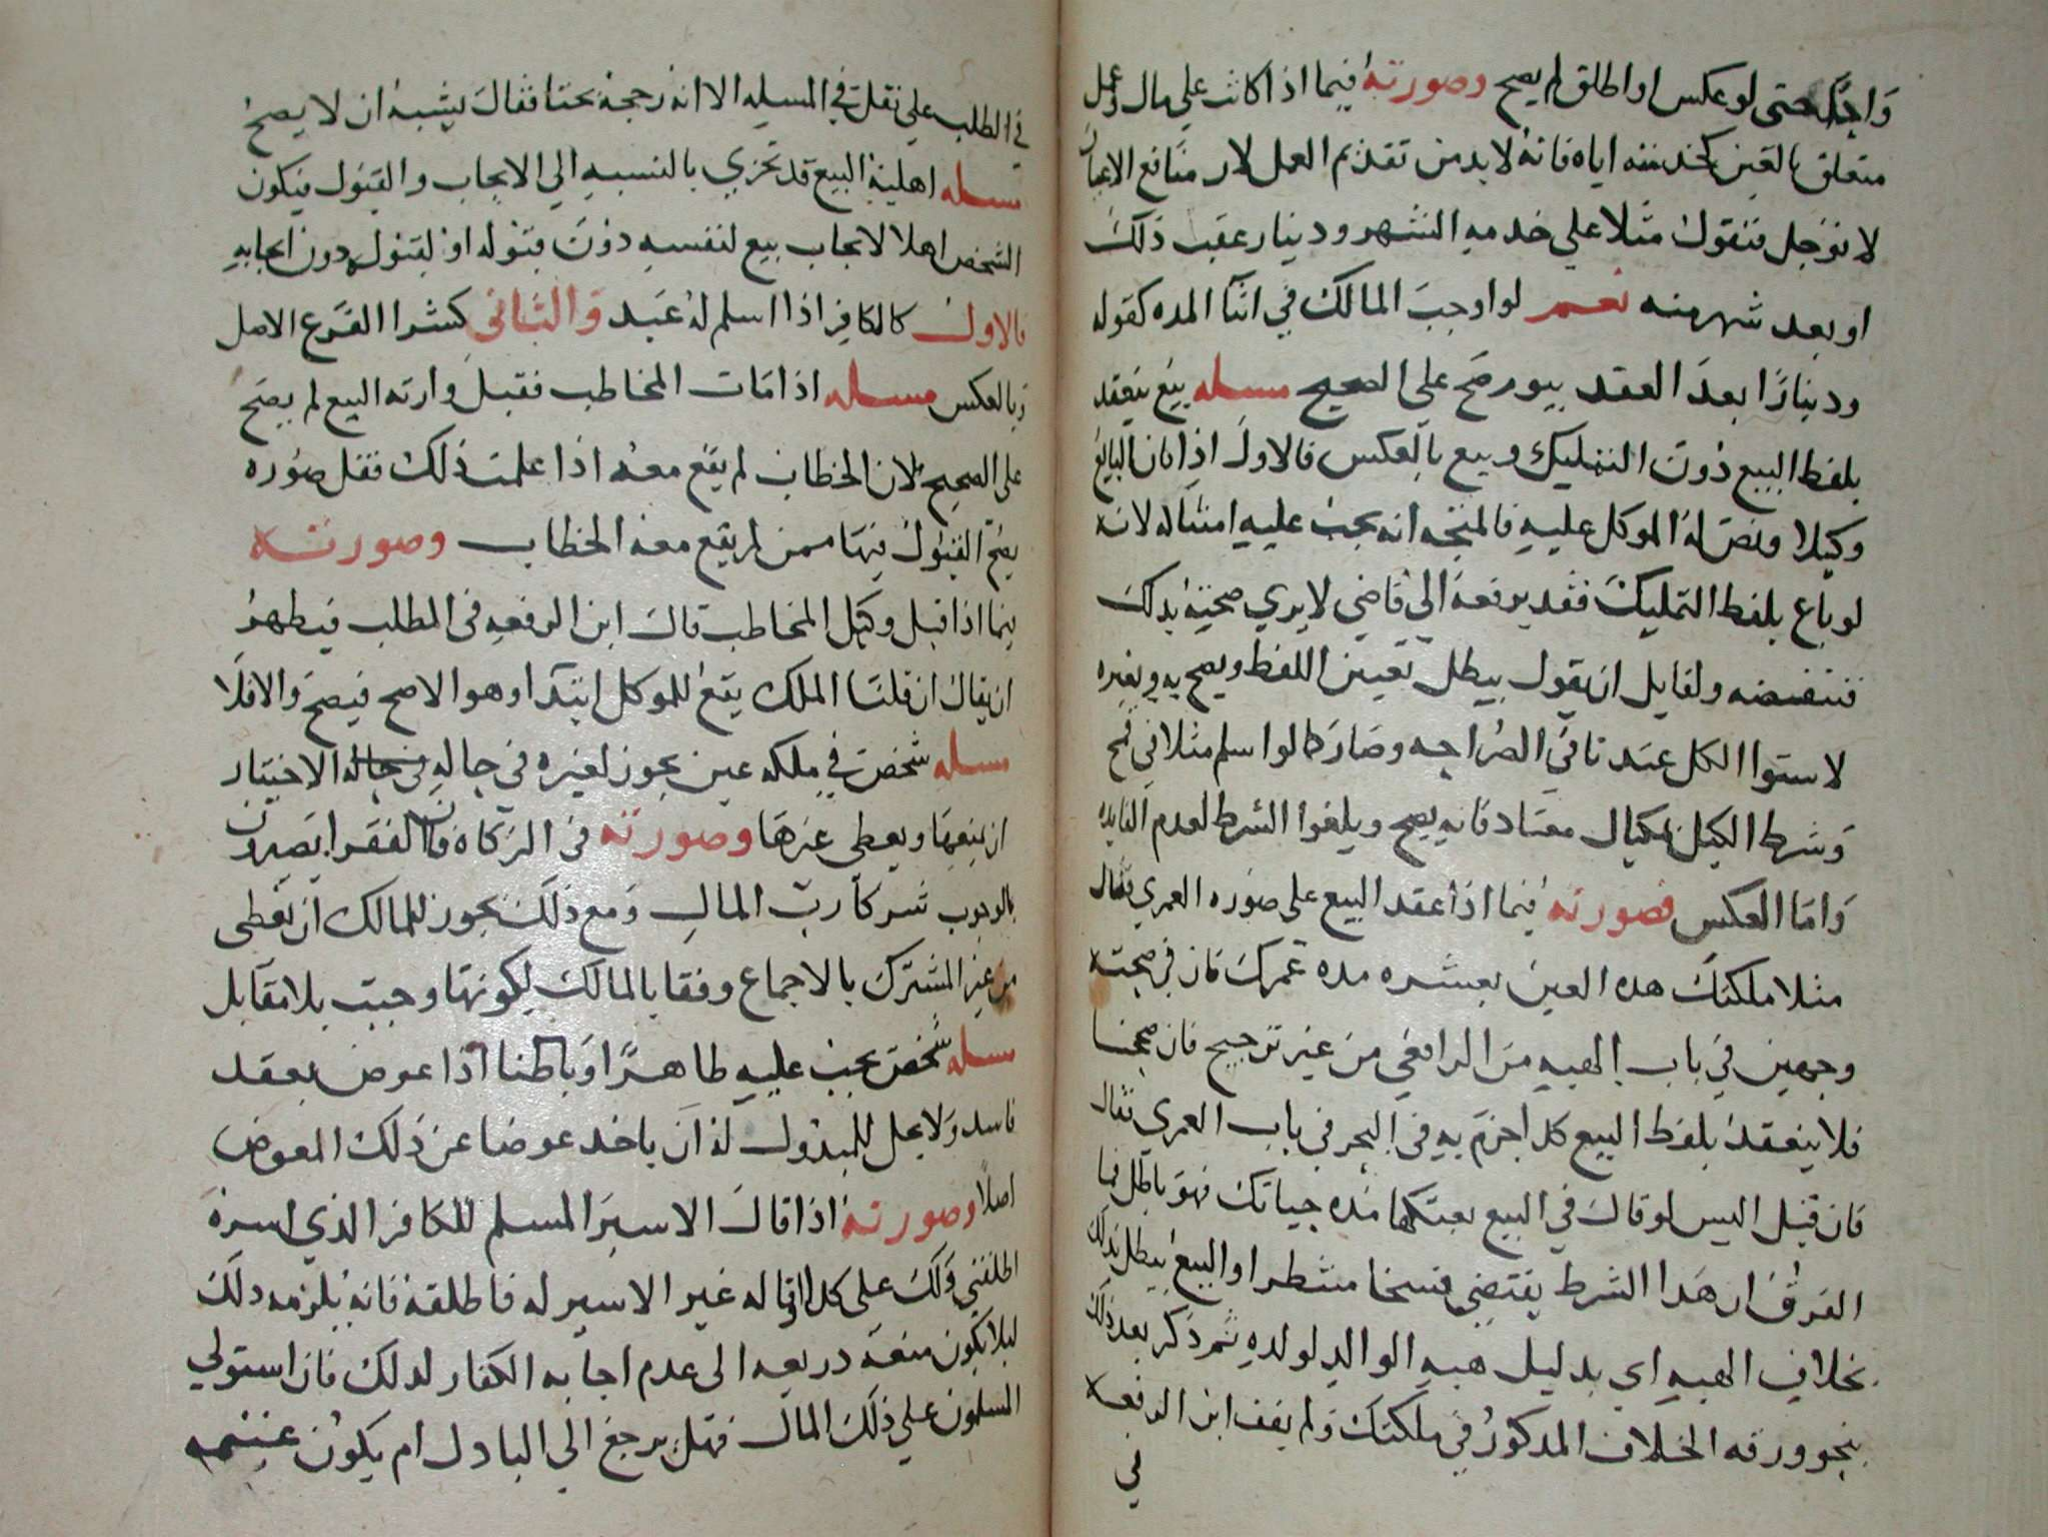 واجل حتى لو عكس او اطلق لم يصح وصورته فيما اذا كانت على مال وعمل
متعلق بالعين كخدمته اياه فانه لا بد من تقديم العمل لان منافع الاعيان
لا توجل فتقول مثلا على خدمه الشهر ودينار عقب ذلك
او بعد شهر منه نعم لو اوجب المالك في اثنا المده كقوله
ودينارا بعد العقد بيوم صح على الصحيح مسله بيع ينعقد
بلفظ البيع دون التمليك وبيع بالعكس فالاول اذا كان البايع
وكيلا ونص له الموكل عليه فالمتجه انه يجب عليه امتثاله لانه
لو باع بلفظ التمليك فقد يرفعه الى قاضي لا يرى صحته بذلك
فتنقضه ولقايل ان يقول يبطل تعيين اللفظ ويصح به وبغيره
لاستوا الكل عند نا في الصراحه وصار كما لو اسلم مثلا في قمح
وشرط الكيل بمكيال معتاد فانه يصح ويلغوا الشرط لعدم الفايده
واما العكس فصورته فيما اذا عقد البيع على صوره العمري فقال
مثلا ملكتك هده العين بعشره مده عمرك فان في صحته
وجهين في باب الهبه من الرافعي من غير ترجيح فان صححنا
فلا ينعقد بلفظ البيع كدا جزم به في البحر في باب العمري فقال
فان قيل اليس لو قال في البيع بعتكها مده حياتك فهو باطل فما
الفرق ان هدا الشرط يقتضي فسخا منتظرا والبيع يبطل بذلك
بخلاف الهبه اي بدليل هبه الوالد لولده ثم ذكر بعد ذلك
بنحو ورقه الخلاف المذكور في ملكتك ولم يقف ابن الرفعه
في
في الطلب على نقل في المسله الا انه رجحه بحثا فقال يشبه ان لا يصح
مسله اهلية البيع قد تجزي بالنسبه الى الايجاب والقبول فيكون
الشخص اهلا لايجاب بيع لنفسه دون قبوله او لقبوله دون ايجابه
فالاول كالكافر اذا اسلم له عبد والثاني كشرا الفرع الاصل
وبالعكس مسله اذا مات المخاطب فقبل وارثه البيع لم يصح
على الصحيح لان الخطاب لم يقع معه اذا علمت ذلك فقل صوره
يصح القبول فيها ممن لم يقع معه الخطاب وصورته
فيما اذا قبل وكيل المخاطب قال ابن الرفعه في المطلب فيظهر
ان يقال ان قلنا الملك يقع للموكل ابتدا وهو الاصح فيصح والا فلا
مسله شخص في ملكه عين يجوز لغيره في حاله الاختيار
ان يمنعها ويعطى غيرها وصورته في الزكاه فان الفقرا يصيرون
بالوجوب شركا رب المال ومع ذلك يجوز للمالك ان يعطى
من غير المشترك بالاجماع وفقا بالمالك لكونها وجبت بلا مقابل
مسله شخص يجب عليه ظاهرا وباطنا اذا عوض بعقد
فاسد ولا يحل للمبذول له ان ياخد عوضا عن ذلك المعوض
اصلا وصورته اذا قال الاسير المسلم للكافر الذي اسره
اطلقني ولك علي كدا او قاله غير الاسير له فاطلقه فانه يلزمه دلك
ليلا يكون منعه دريعه الى عدم اجابه الكفار لدلك فان استولى
المسلمون على ذلك المال فهل يرجع الى البادل ام يكون غنيمه